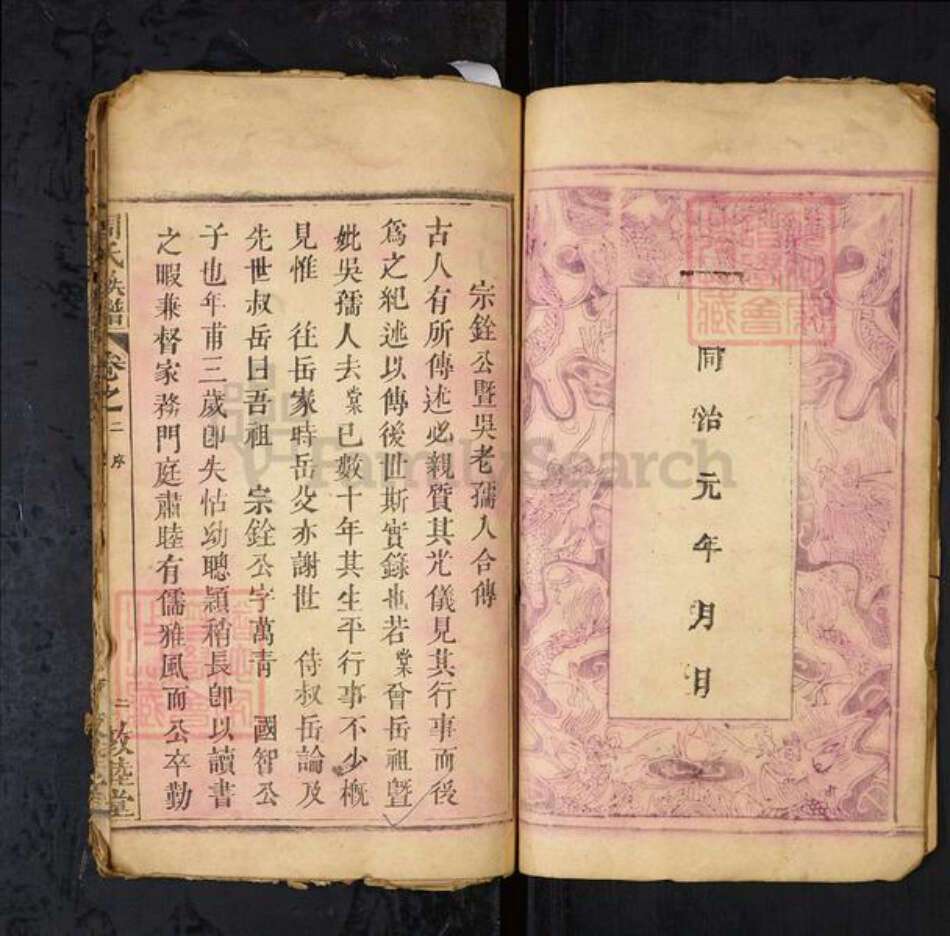 同治元年月日
宗銓公暨吳老孺人合傳
古人有所傳述必親質其光儀見其行事而後
爲之紀述以傳後世斯實錄也若棠曾岳祖暨
妣吳孺人去棠已數十年其生平行事不少概
見惟 往岳家時岳父亦謝世 侍叔岳論及
先世叔岳曰吾祖 宗銓公字萬青 國智公
子也年甫三歲卽失怙幼聰穎稍長卽以讀書
之暇兼督家務門庭肅睦有儒雅風而公卒勤
周氏族譜 卷之二 序 二 敦睦堂
FamilySearch